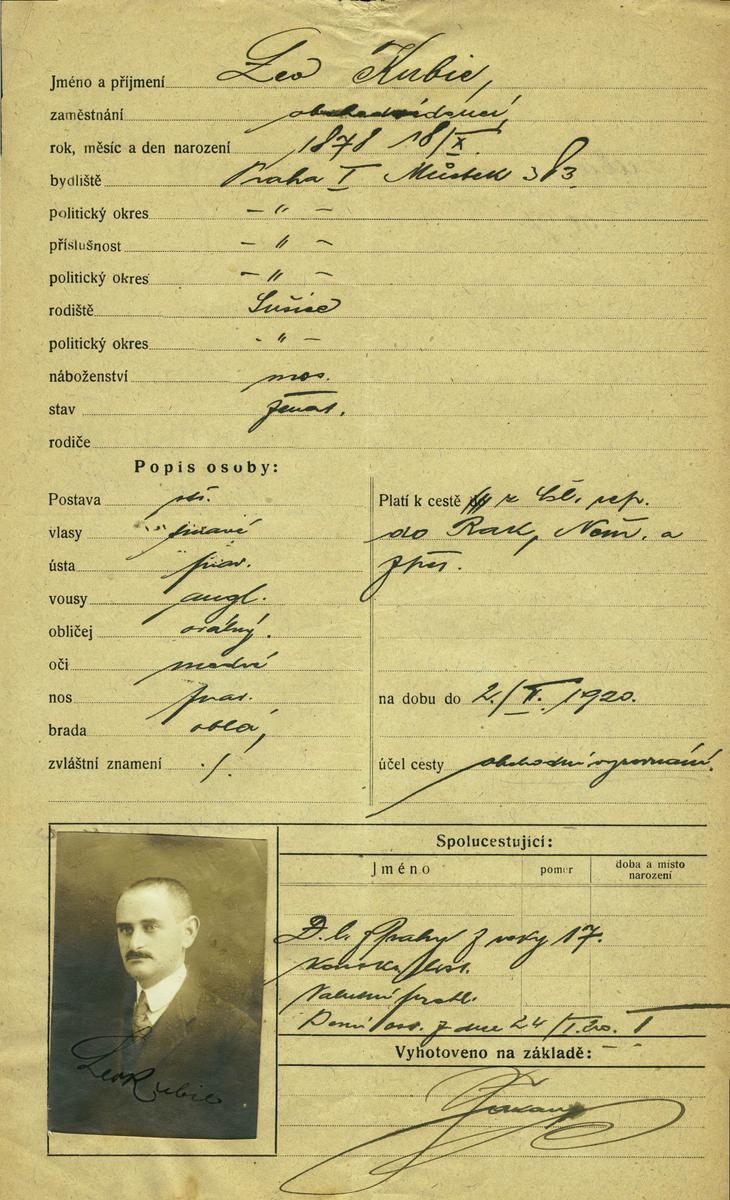 Jméno a příjmení Leo Kubie,
zaměstnání
rok, měsíc a den narození 1878 18/X.
bydliště Praha I Můstek 383.
politický okres – " –
příslušnost – " –
politický okres – " –
rodiště Sušice
politický okres - " –
náboženství mos.
stav ženat.
rodiče
Popis osoby:
Postava stř.
vlasy tmavé
ústa prav.
vousy angl.
obličej oválný.
oči modré
nos prav.
brada oblá,
zvláštní znamení ./.
Platí k cestě z čsl. rep.
do Rak, Něm. a
zpět.
na dobu do 2./II. 1920.
účel cesty obchodní vyrovnání.
Spolucestující:
Jméno poměr doba a místo narození
D. l. Prahy z roky 17.
Valutní prohl.
Dom. osv. z dne 24/I.20. I
Vyhotoveno na základě:
Leo Kubie